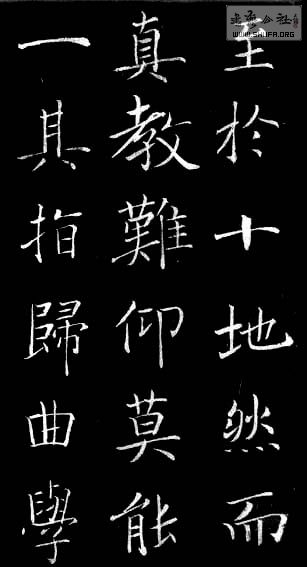 至於十地然而
真教難仰莫能
一其指歸曲學
WWW.SHUFA.ORG